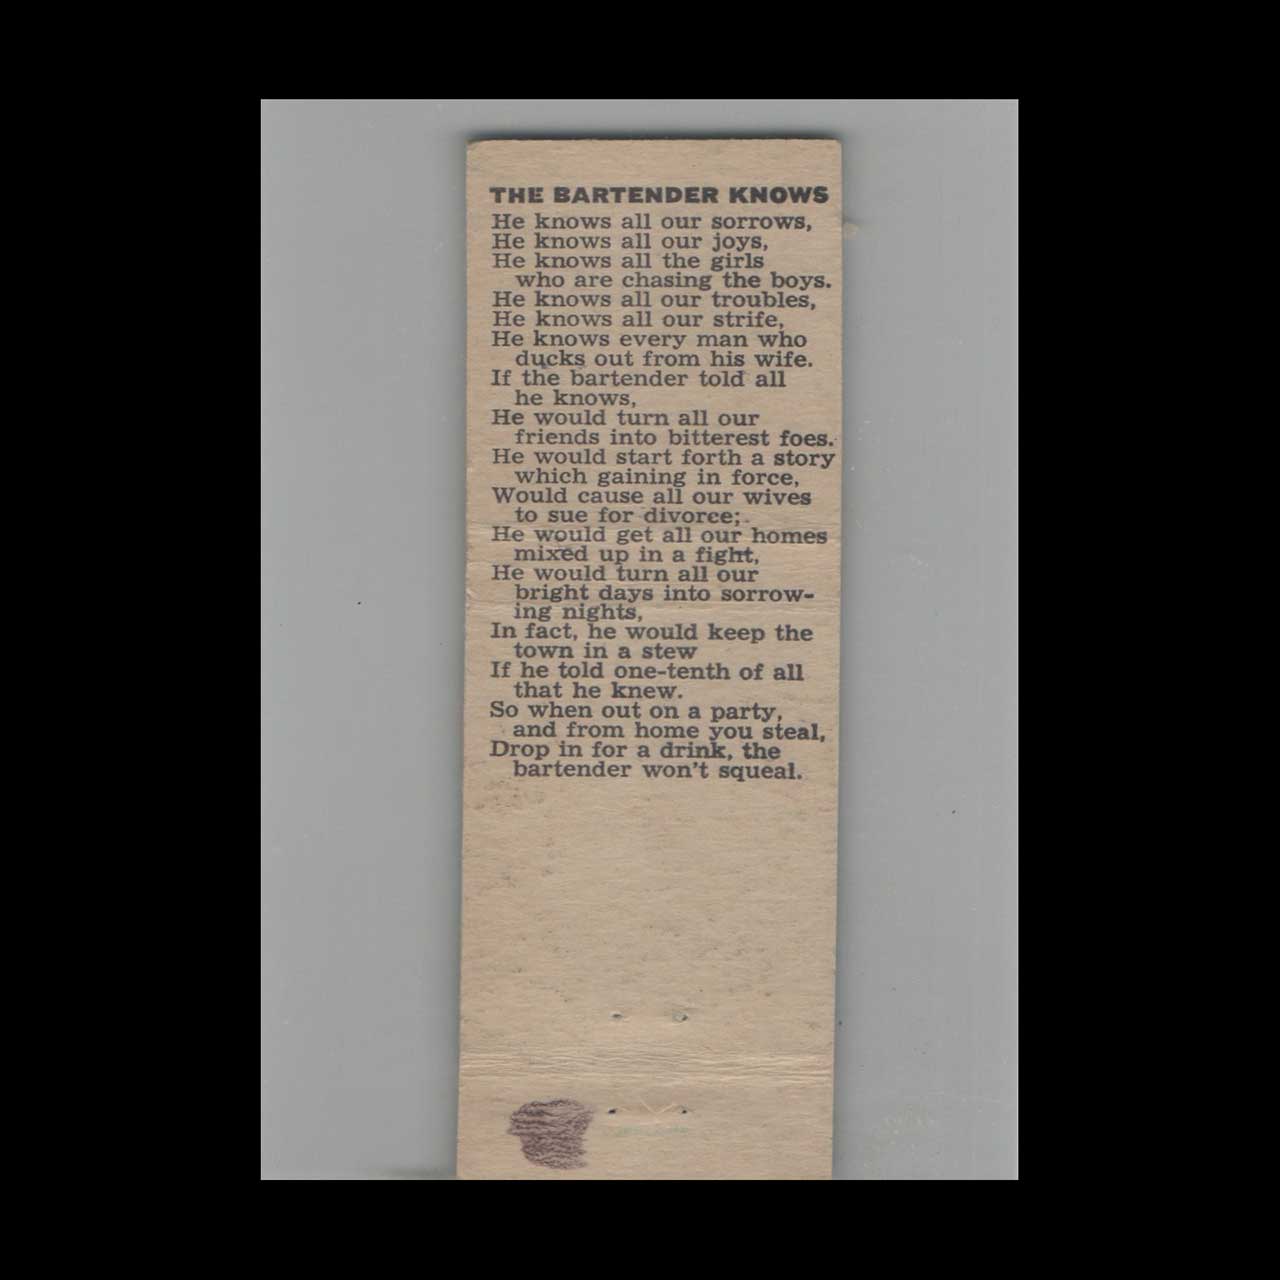 THE BARTENDER KNOWS
He knows all our sorrows,
He knows all our joys,
He knows all the girls
who are chasing the boys.
He knows all our troubles,
He knows all our strife,
He knows every man who
ducks out from his wife.
If the bartender told all
he knows,
He would turn all our
friends into bitterest foes.
He would start forth a story
which gaining in force,
Would cause all our wives
to sue for divorce;
He would get all our homes
mixed up in a fight,
He would turn all our
bright days into sorrow-
ing nights,
In fact, he would keep the
town in a stew
If he told one-tenth of all
that he knew.
So when out on a party,
and from home you steal,
Drop in for a drink, the
bartender won't squeal.